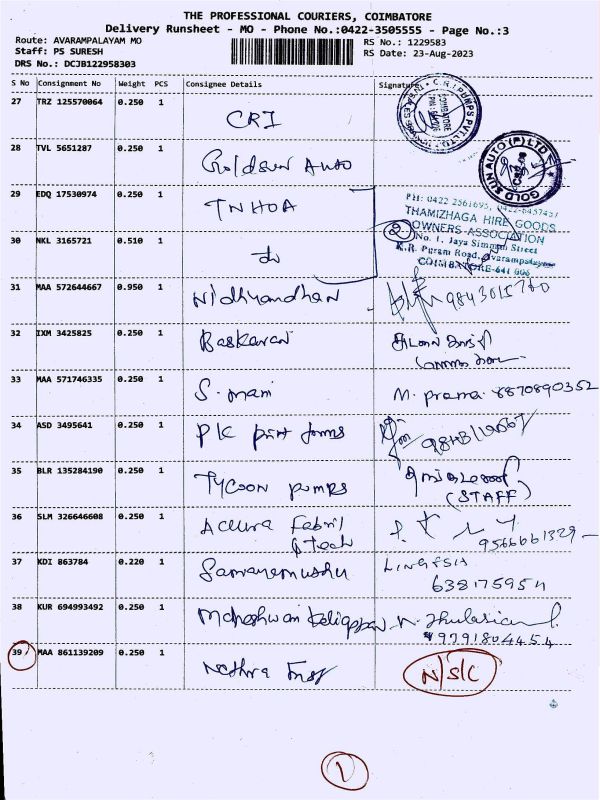 THE PROFESSIONAL COURIERS, COIMBATORE
Delivery Runsheet - MO - Phone No.:0422-3505555 - Page No.:3
Route: AVARAMPALAYAM MO
Staff: PS SURESH
DRS No.: DCJB122958303
RS No.: 1229583
RS Date: 23-Aug-2023
S No Consignment No Weight PCS Consignee Details Signature
27 TRZ 125570064 0.250 1 CRI
28 TVL 5651287 0.250 1 Goldsun Auto
GOLD SUN AUTO (P) LTD
29 EDQ 17530974 0.250 1 TNHOA
PH: 0422 2561695, 0422-6457457
THAMIZHAGA HIRE GOODS
OWNERS ASSOCIATION
2
No. 1, Jaya Simman Street
K.R. Puram Road, Avarampalayam
COIMBATORE-641 006
30 NKL 3165721 0.510 1
31 MAA 572644667 0.950 1 Nidhyandhan 9843015760
32 IXM 3425825 0.250 1 Baskaran
33 MAA 571746335 0.250 1 S. mani M. prema 8870890352
34 ASD 3495641 0.250 1 PK print forms
35 BLR 135284190 0.250 1 Tycoon pumps
(STAFF)
36 SLM 326646608 0.250 1 Accura Fabril
Tech 9566661329
37 KDI 863784 0.220 1
638175954
38 KUR 694993492 0.250 1 Maheshwari
9791804454
39 MAA 861139209 0.250 1 Nethra Trust N/S/C
1